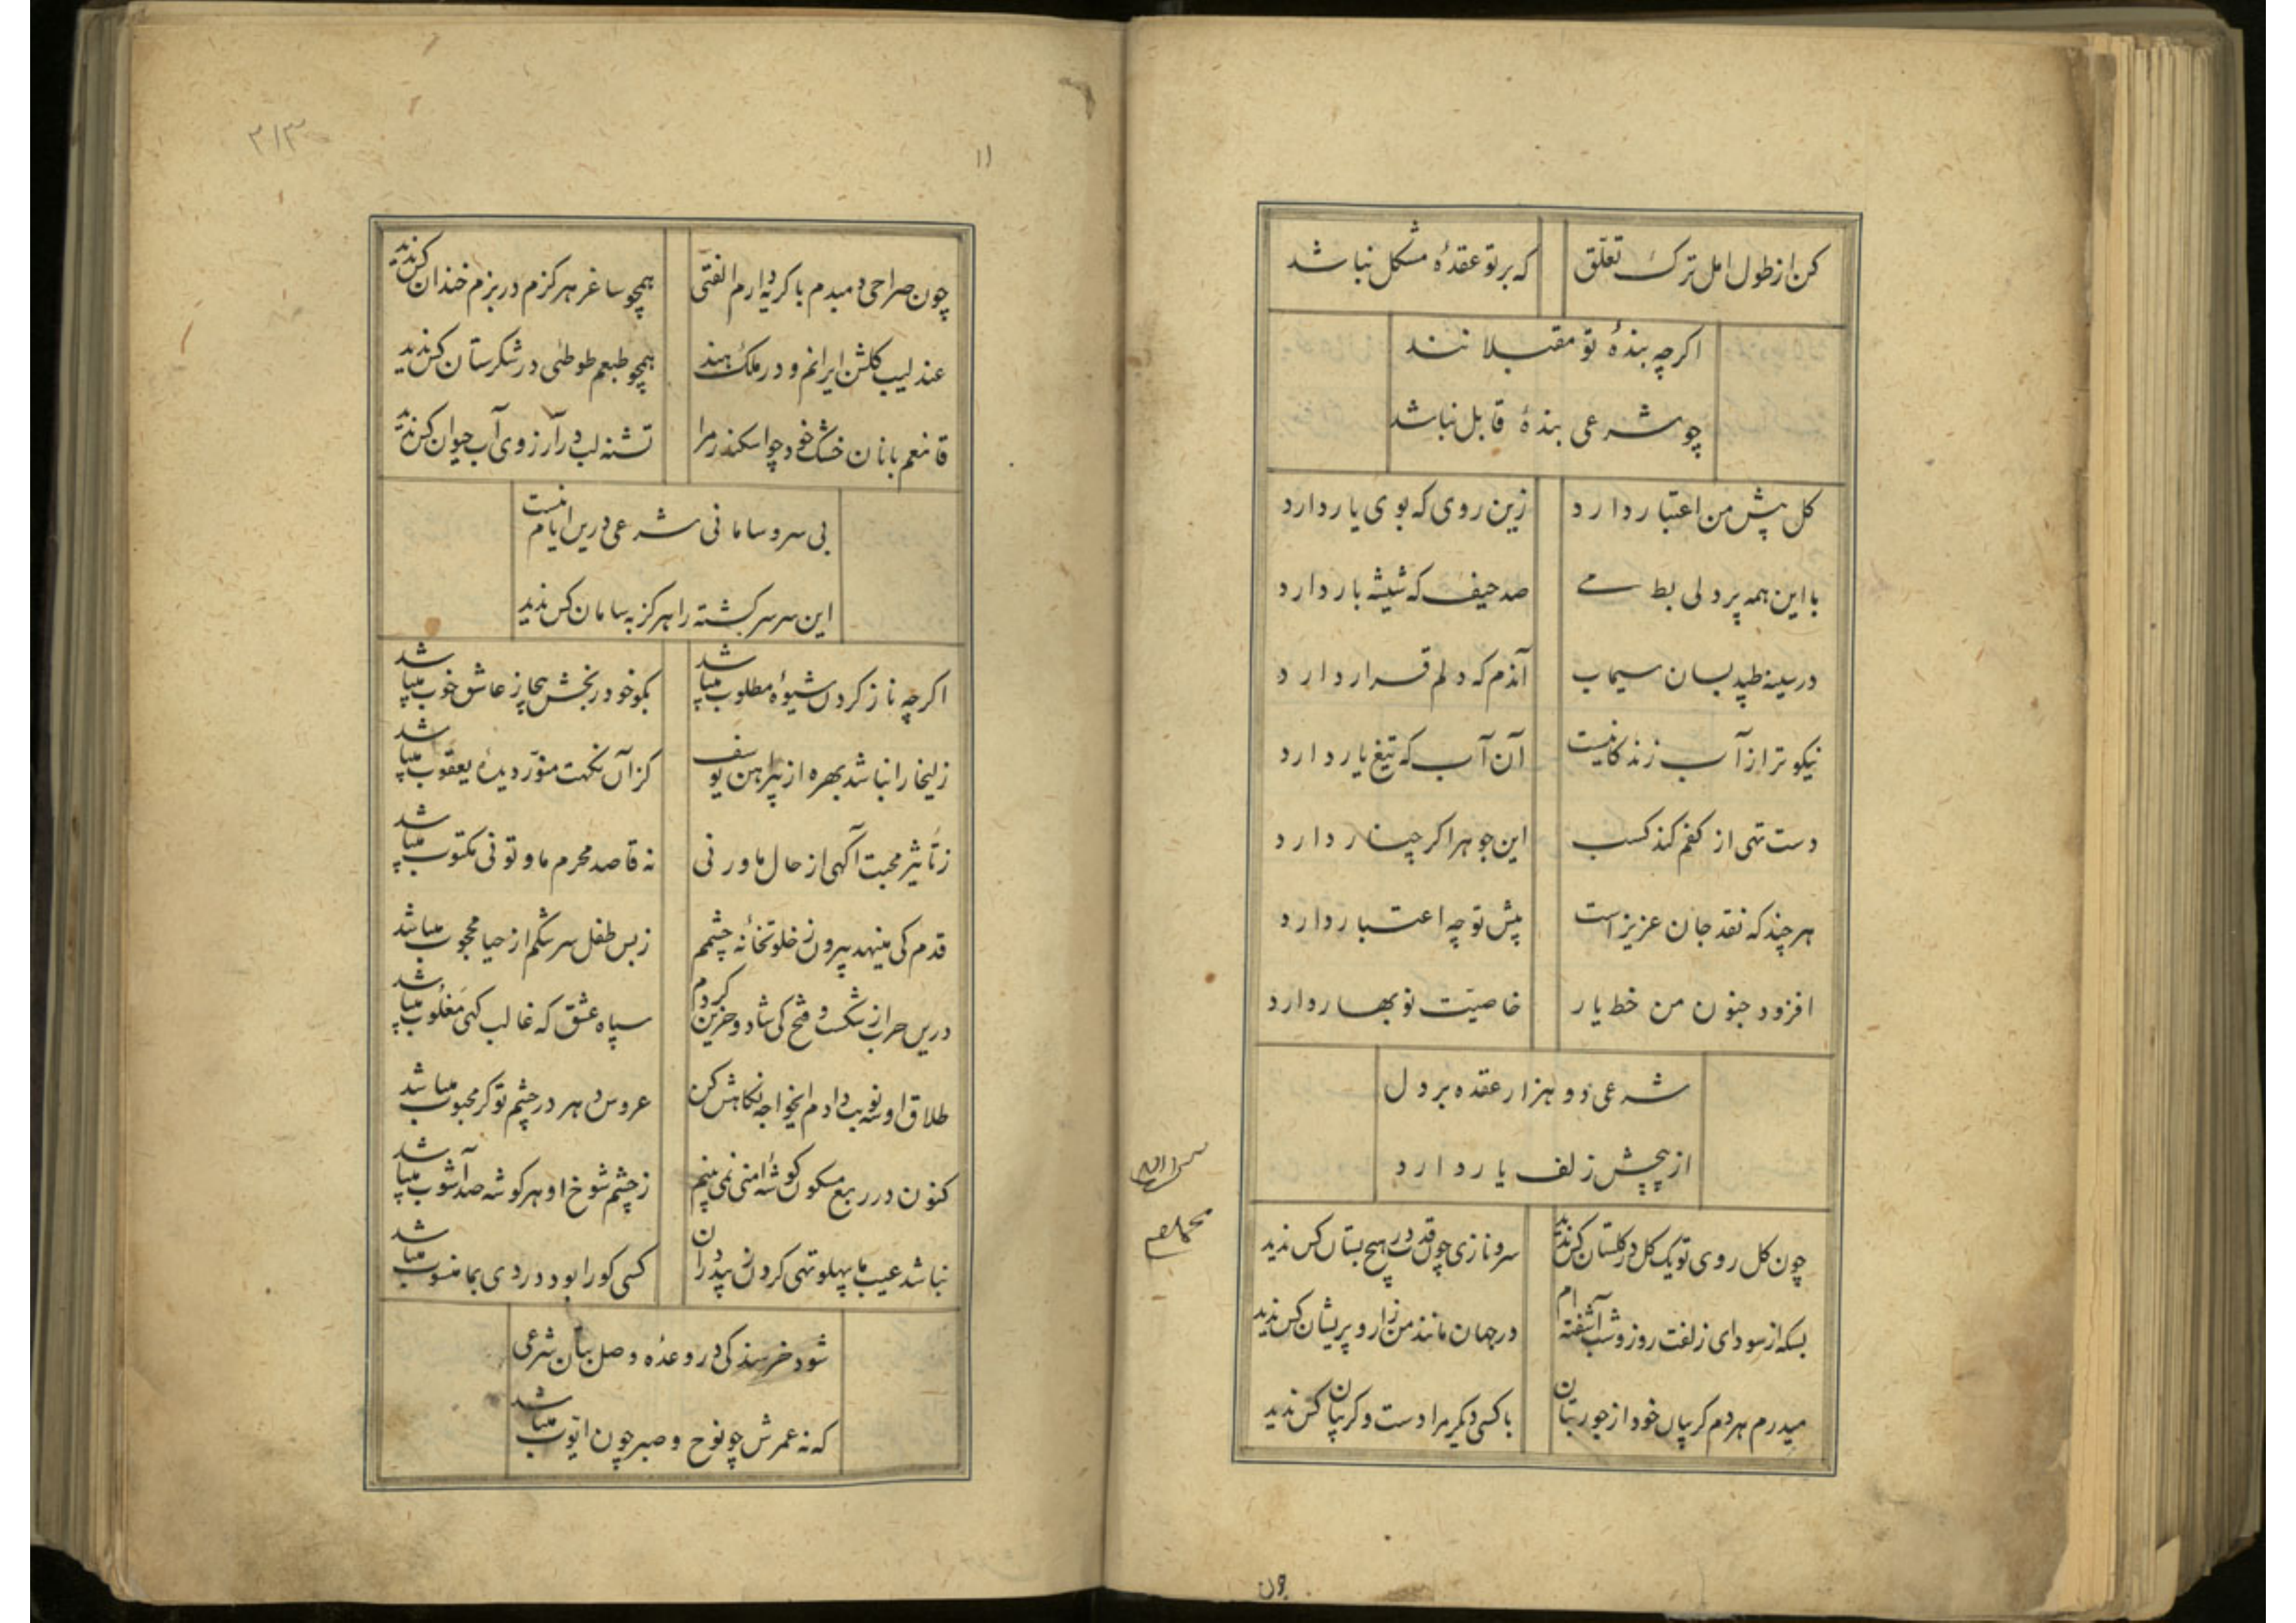 کن از طول امل ترک تعلّق که بر تو عقدهٔ مشکل نباشد
اکرچه بندهٔ تو مقبلانند
چو شرعی بندهٔ قابل نباشد
کل پیش من اعتبار دارد زین روی که بوی یار دارد
با این همه پردلی بط می صد حیف که شیشه بار دارد
در سینه طپد بسان سیماب آندم که دلم قرار دارد
نیکوتر از آب زندکانیست آن آب که تیغ یار دارد
دست تهی از کفم کند کسب این جوهر اکر چنار دارد
هرچند که نقد جان عزیز است پیش تو چه اعتبار دارد
افزود جنون من خط یار خاصیّت نوبهار دارد
شرعی دو هزار عقده بر دل
از پیچش زلف یار دارد
چون کل روی تو یک کل در کلستان کس ندید سرو نازی چون قدت در هیچ بستان کس ندید
بسکه از سودای زلفت روز و شب آشفته ام در جهان مانند من زار و پریشان کس ندید
میدرم هر دم کریبان خود از جور بتان با کسی دیکر مرا دست و کریبان کس ندید
چون
۲۱۳
۱۱
چون صراحی دمبدم با کریه دارم الفتی همچو ساغر هرکزم در بزم خندان کس ندید
عندلیب کلشن ایرانم و در ملک هند همچو طبعم طوطئی در شکرستان کس ندید
قانعم با نان خشک خود چو اسکندر مرا تشنه لب در آرزوی آب حیوان کس ندید
بی سر و سامانی شرعی درین ایام نیست
این سر سرکشته را هرکز به سامان کس ندید
اکرچه ناز کردن شیوهٔ مطلوب میباشد بکو خود رنجش بیجا ز عاشق خوب میباشد
زلیخا را نباشد بهره از پیراهن یوسف کزان نکهت منوّر دیدهٔ یعقوب میباشد
ز تأثیر محبت آکهی از حال ما ور نی نه قاصد محرم ما و تو نی مکتوب میباشد
قدم کی مینهد بیرون ز خلوتخانهٔ چشمم ز بس طفل سرشکم از حیا محجوب میباشد
درین حرب از شکست و فتح کی شاد و حزین کردم سپاه عشق که غالب کهی مغلوب میباشد
طلاق او سه نوبت دادم ایخواجه نکاهش کن عروس دهر در چشم تو کر محبوب میباشد
کنون در ربع مسکون کوشهٔ امنی نمی بینم ز چشم شوخ او هر کوشه صد آشوب میباشد
نباشد عیب ما پهلو تهی کردن ز بیدردان کسی کو را بود دردی بما منسوب میباشد
شود خرسند کی در وعده وصل بتان شرعی
که نه عمرش چو نوح و صبر چون ایّوب میباشد